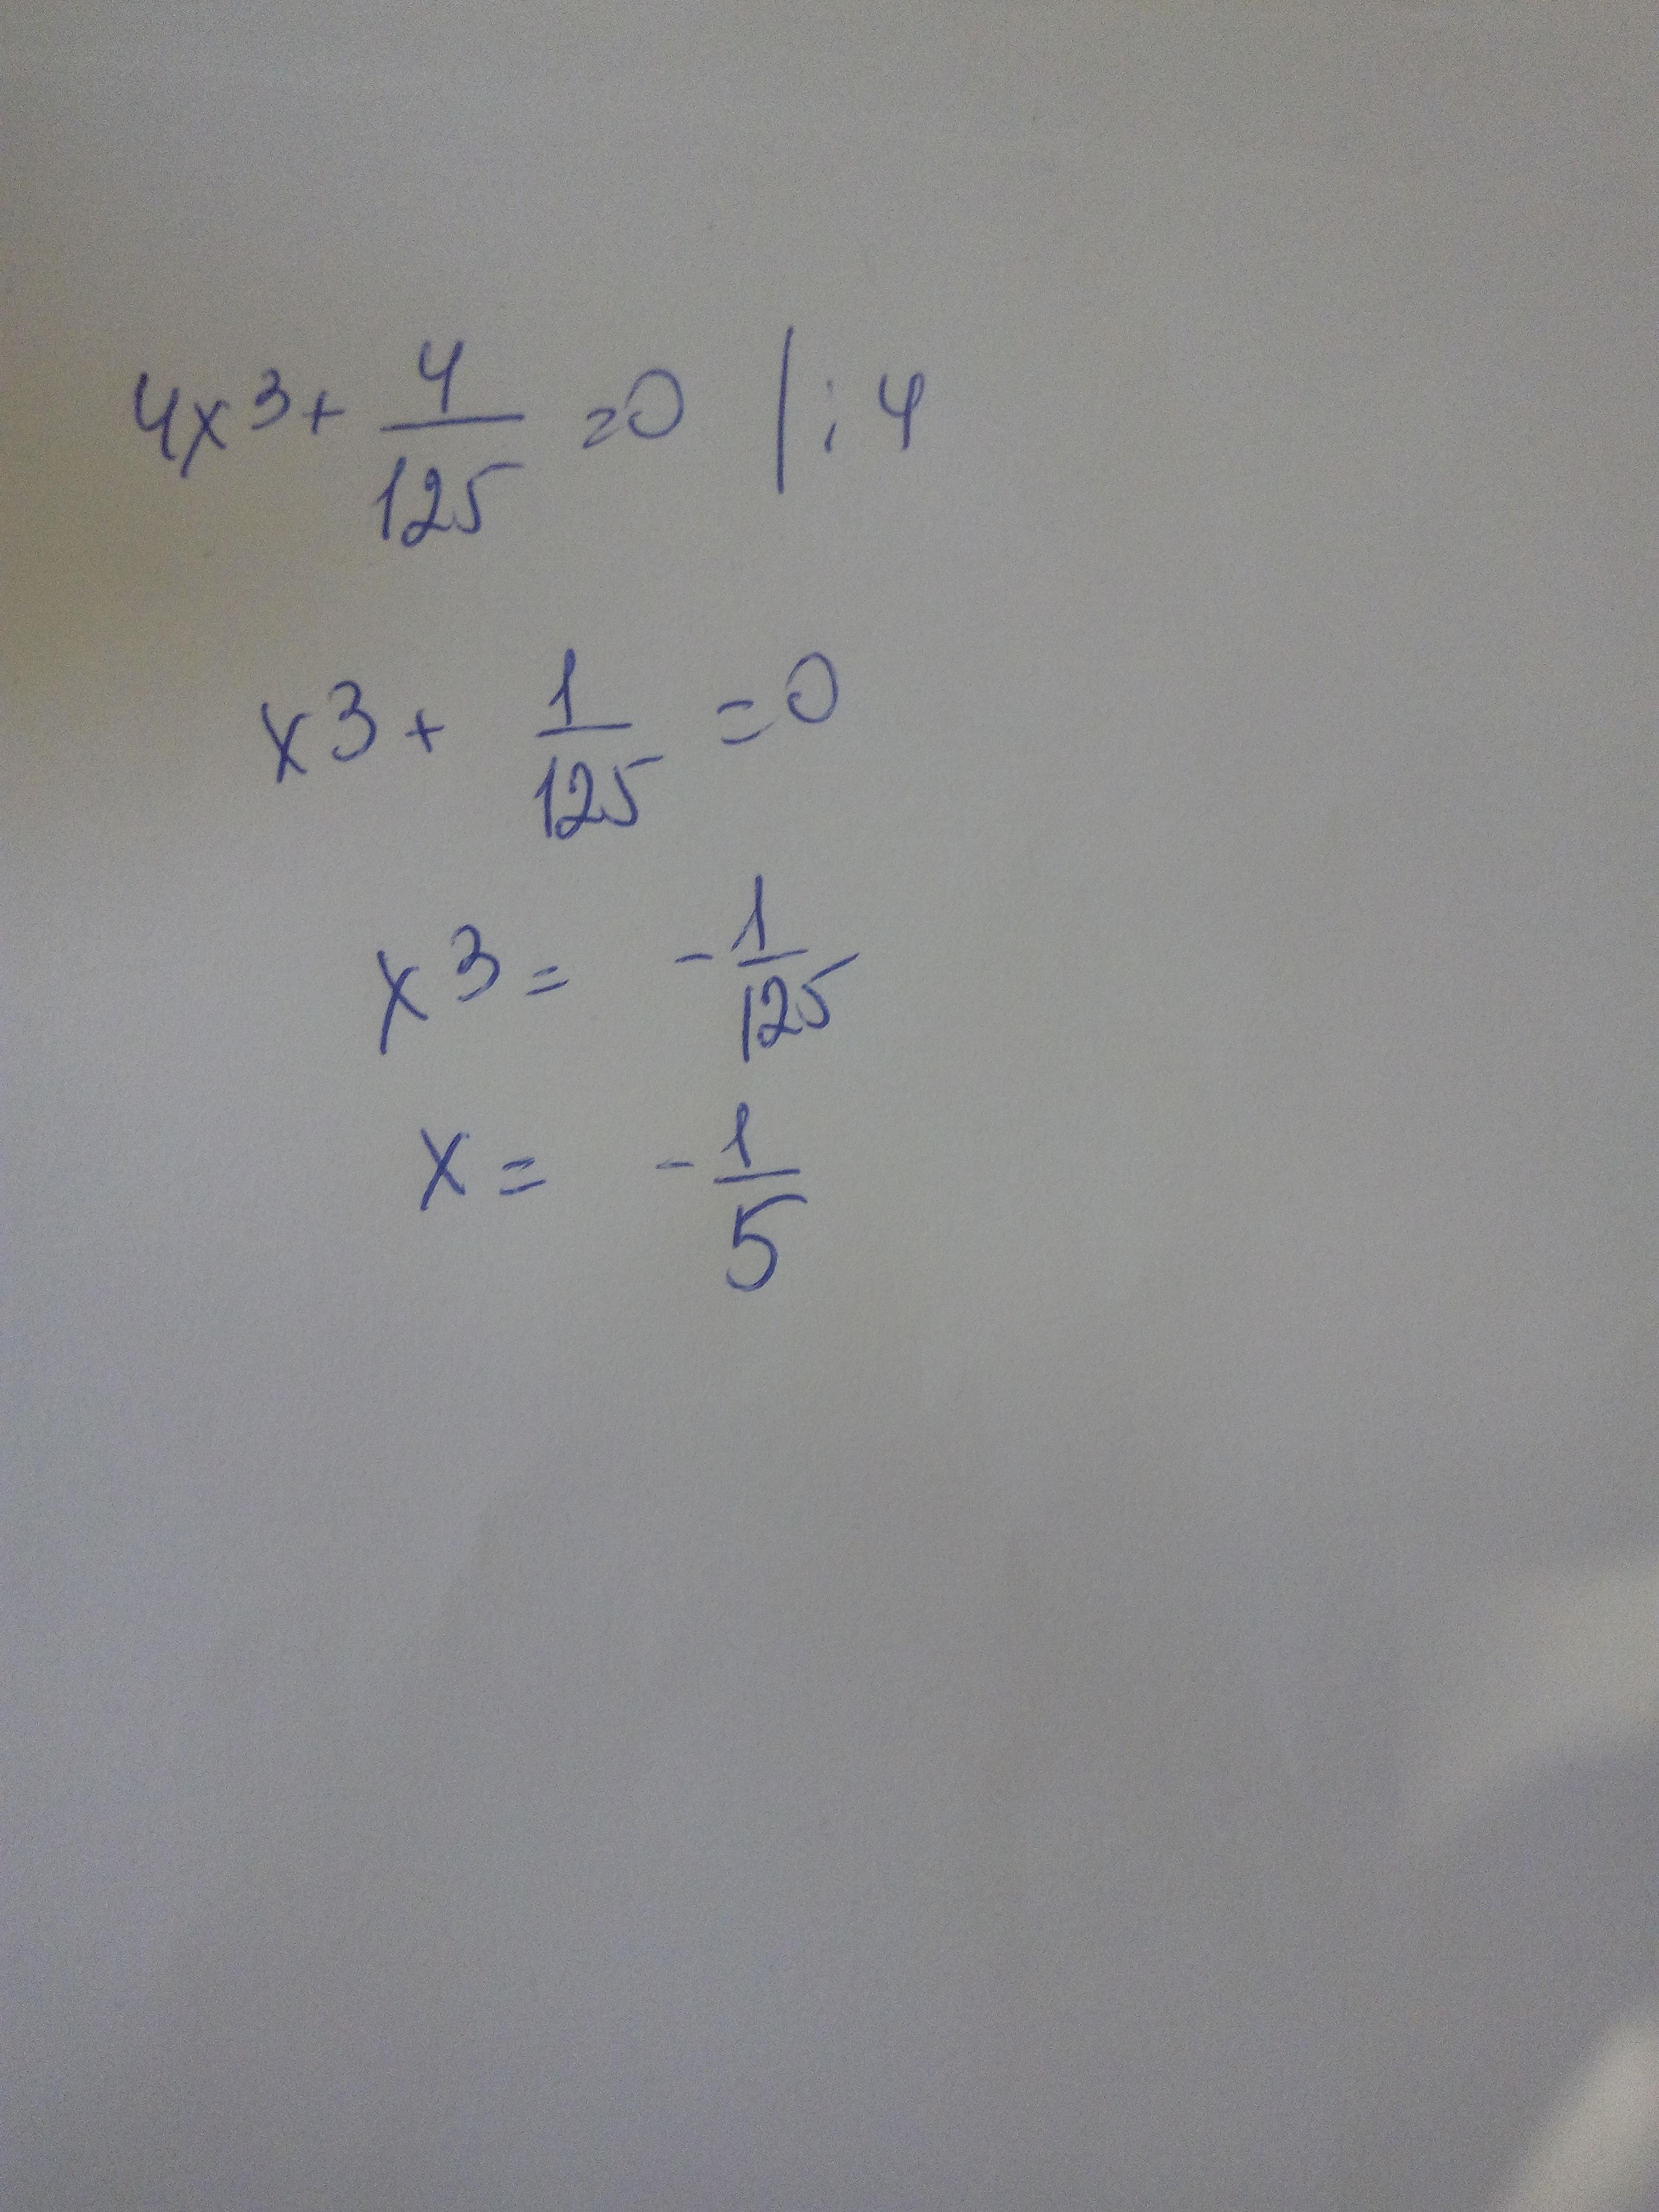 4x³ + 4/125 = 0 | : 4
x³ + 1/125 = 0
x³ = - 1/125
x = - 1/5